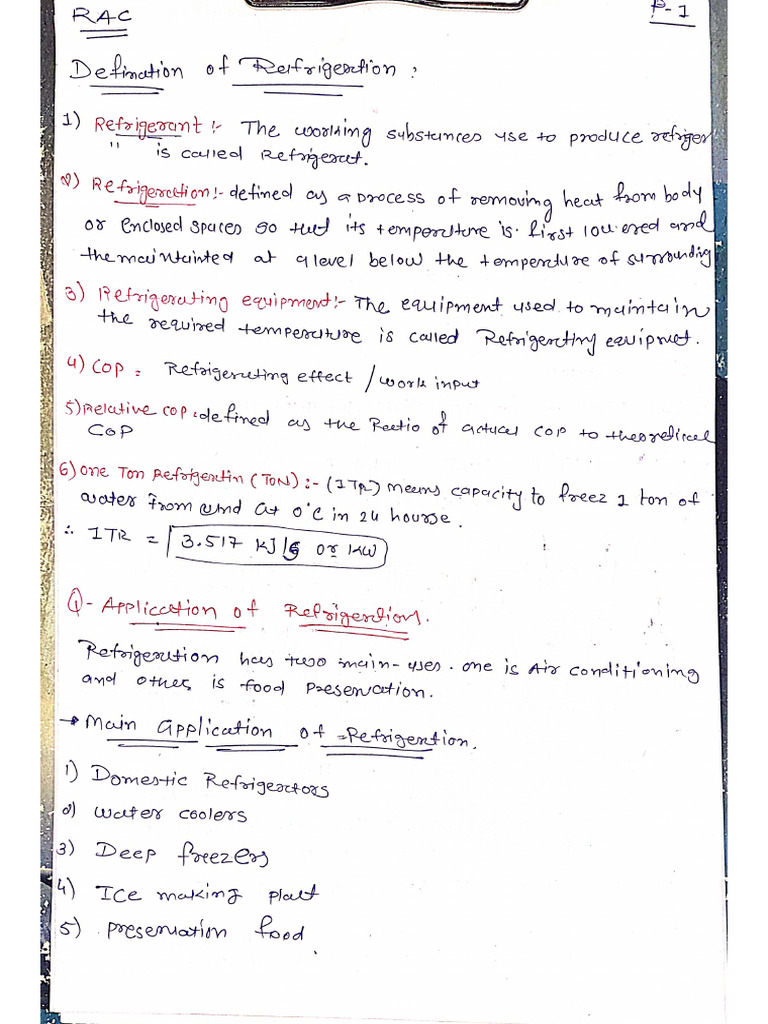 RAC
P-1
Defination of Refrigeration :
1) Refrigerant :- The working substances use to produce refriger
" is called Refrigerat.
2) Refrigeration :- defined as a process of removing heat from body
or enclosed spaces so that its temperature is first lowered and
the maintainted at a level below the temperature of surrounding
3) Refrigerating equipment :- The equipment used to maintain
the required temperature is called Refrigerating equipmet.
4) COP = Refrigerating effect / work input
5) Relative COP : defined as the Ratio of actual COP to theoredical
COP
6) One Ton Refrigertin (TON) :- (1TR) means capacity to freez 1 ton of
water from and at 0°C in 24 hourse.
∴ 1TR = 3.517 KJ/s or KW
Q - Application of Refrigeration.
Refrigeration has two main-uses. one is Air conditioning
and other is food preservation.
→ Main application of Refrigertion.
1) Domestic Refrigerators
2) water coolers
3) Deep freezers
4) Ice making plat
5) preservation food